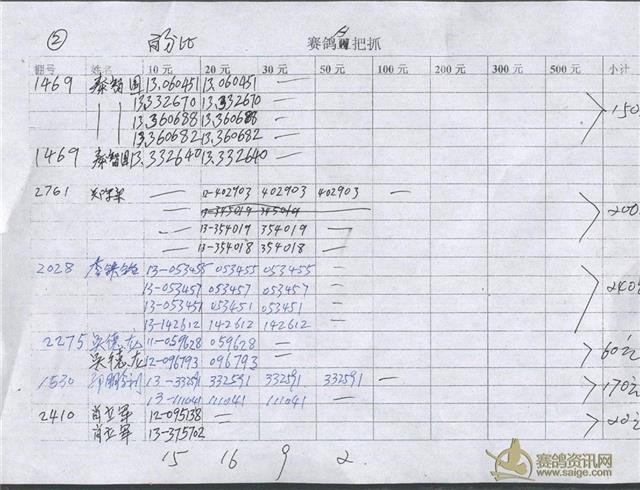 ② 百分比 赛鸽 把抓
棚号 姓名 10 元 20 元 30 元 50 元 100 元 200 元 300 元 500 元 小计
1469 秦智国 13.060451 13.060451 —
13.332670 13.332670 — 150
13.360688 13.360688 —
13.360682 13.360682 —
1469 秦智国 13.332640 13.332640 —
2761 — 12-402903 402903 402903 —
— 13-345019 345019
— 13-354019 354019 — 200
— 13-354018 354018 —
2028 13-053455 053455 053455 —
13-053457 053457 053457 —
13-053451 053451 053451 — 240
13-142612 142612 142612 —
2275 吴德龙 11-059628 059628 —
吴德龙 12-096793 096793 — 60元
1530 13-332591 332591 332591 332591 — 170元
13-111041 111041 111041 —
2410 肖亚军 12-095138 — 20元
肖亚军 13-375702
15 16 9 2
赛鸽资讯网
www.saige.com